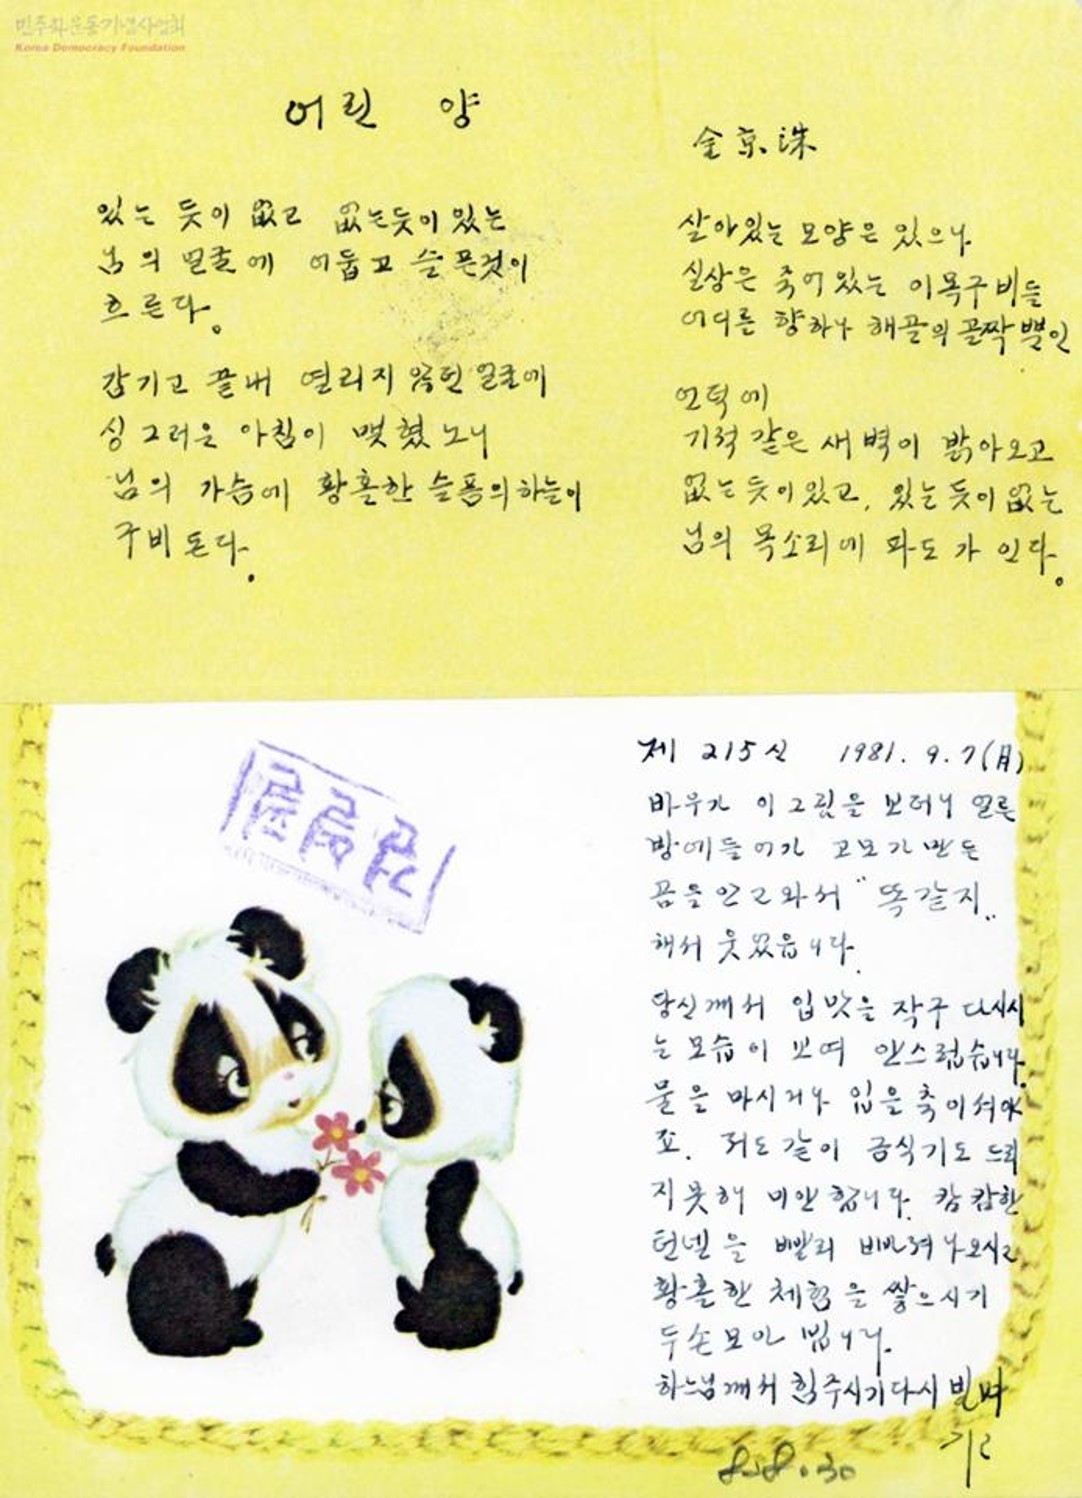 민주화운동기념사업회
Korea Democracy Foundation
어린 양
金京洙
있는 듯이 없고 없는듯이 있는
님의 얼굴에 어둡고 슬픈것이
흐른다.
감기고 끝내 열리지 않던 얼굴에
싱그러운 아침이 맺혔노니
님의 가슴에 황홀한 슬픔의 하늘이
구비 돈다.
살아있는 모양은 있으나
실상은 죽어있는 이목구비들
어디를 향하나 해골의 골짝뿐인
언덕에
기적 같은 새벽이 밝아오고
없는듯이있고, 있는듯이 없는
님의 목소리에 파도가 인다.
제 215신 1981. 9. 7(月)
바우가 이그림을 보더니 얼른
방에들어가 고모가 만든
곰을 안고와서 "똑같지"
해서 웃었읍니다.
당신께서 입맛을 작구 다시시
는 모습이 보여 안스럽습니다.
물을 마시거나 입을 축이셔야
죠. 저도 같이 금식기도 드리
지못해 미안합니다. 캄캄한
턴넬을 빨리 빠져나오시고
황홀한 체험을 쌓으시기
두손모아 빕니다.
하느님께서 힘주시기다시 빌며